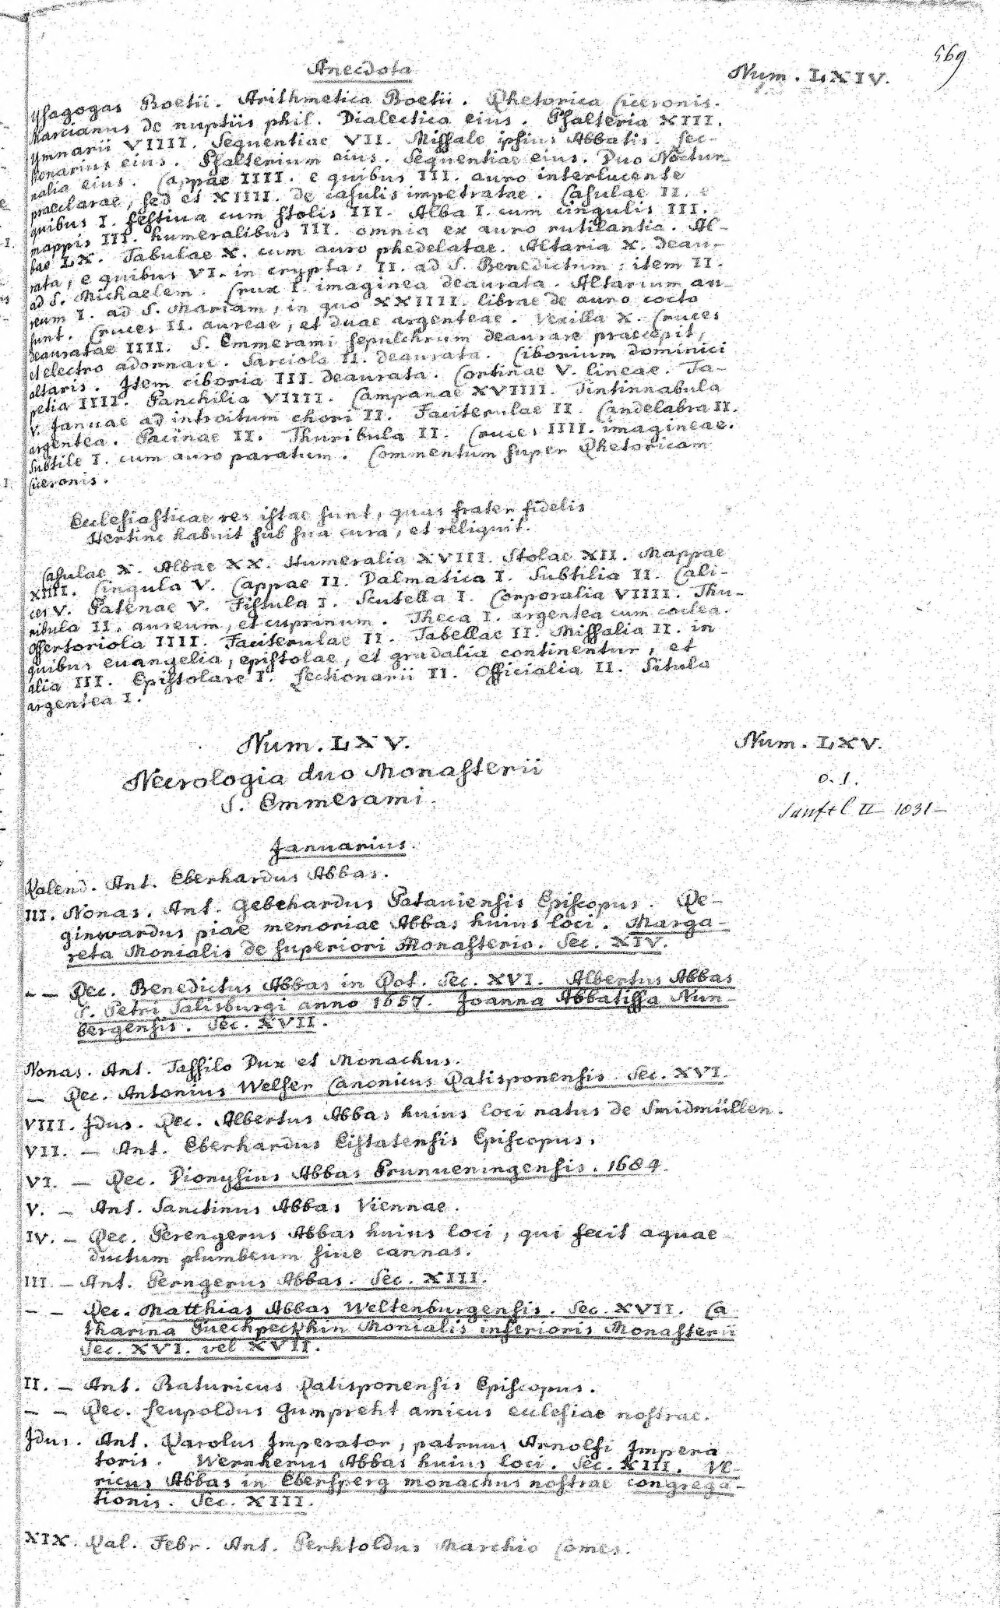 569
Anecdota
Num. LXIV.
Ysagogas Boetii. Arithmetica Boetii. Rhetorica Ciceronis.
Marcianus de nuptiis phil. Dialectica eius. Psalteria XIII.
Ymnarii VIIII. Sequentiae VII. Missale ipsius Abbatis. Lec-
tionarius eius. Psalterium eius. Sequentiae eius. Duo Noctur-
nalia eius. Cappae IIII. e quibus III. auro interlucente
praeclarae, sed et XIIII. de casulis impetratae. Casulae II. e
quibus I. festiva cum stolis III. Alba I. cum cingulis III.
mappis III. humeralibus III. omnia ex auro rutilantia. Al-
bae LX. Tabulae X. cum auro phedelatae. Altaria X. deau-
rata, e quibus VI. in crypta: II. ad S. Benedictum: item II.
ad S. Michaelem. Crux I. imaginea deaurata. Altarium au-
reum I. ad S. Mariam, in quo XXIIII. librae de auro cocto
sunt. Cruces II. aureae, et duae argenteae. Vexilla X. Cruces
deauratae IIII. S. Emmerami sepulchrum deaurare praecepit,
et electro adornari. Sarciola II. deaurata. Ciborium dominici
altaris. Item ciboria III. deaurata. Cortinae V. lineae. Ta-
petia IIII. Panchilia VIIII. Campanae XVIIII. Tintinnabula
V. Januae ad introitum chori II. Faciterulae II. Candelabra II.
argentea. Pacinae II. Thuribula II. Cruces IIII. imagineae.
Subtile I. cum auro paratum. Commentum super Rhetoricam
Ciceronis.
Ecclesiasticae res istae sunt, quas frater fidelis
Hertinc habuit sub sua cura, et reliquit.
Casulae X. Albae XX. Humeralia XVIII. Stolae XII. Mappae
XIIII. Cingula V. Cappae II. Dalmatica I. Subtilia II. Cali-
ces V. Patenae V. Fistula I. Scutella I. Corporalia VIIII. Thu-
ribula II. aureum, et cuprinum. Theca I. argentea cum coclea.
Offertoriola IIII. Faciterulae II. Tabellae II. Missalia II. in
quibus euangelia, epistolae, et gradalia continentur, et
alia III. Epistolare I. Lectionarii II. Officialia II. Situla
argentea I.
Num. LXV.
Num. LXV.
Necrologia duo Monasterii
S. Emmerami.
o. S.
Sanftl II 1031
Januarius.
Kalend. Ant. Eberhardus Abbas.
III. Nonas. Ant. Gebehardus Patauiensis Episcopus. Re-
ginwardus piae memoriae Abbas huius loci. Marga-
reta Monialis de superiori Monasterio. Sec. XIV.
– – Rec. Benedictus Abbas in Rot. Sec. XVI. Albertus Abbas
S. Petri Salisburgi anno 1657. Joanna Abbatissa Nun-
bergensis. Sec. XVII.
Nonas. Ant. Tassilo Dux et Monachus.
– Rec. Antonius Welser Canonicus Ratisponensis. Sec. XVI.
VIII. Idus. Rec. Albertus Abbas huius loci natus de Smidmüllen.
VII. – Ant. Eberhardus Eistatensis Episcopus.
VI. – Rec. Dionysius Abbas Prunueningensis. 1684.
V. – Ant. Sanctinus Abbas Viennae.
IV. – Rec. Perengerus Abbas huius loci, qui fecit aquae
ductum plumbeum siue cannas.
III. – Ant. Perngerus Abbas. Sec. XIII.
– – Rec. Matthias Abbas Weltenburgensis. Sec. XVII. Ca
tharina Puechpeckhin Monialis inferioris Monasterii
Sec. XVI. vel XVII.
II. – Ant. Baturicus Ratisponensis Episcopus.
– – Rec. Leupoldus Gumpreht amicus ecclesiae nostrae.
Idus. Ant. Karolus Imperator, patruus Arnolfi Impera
toris. Wernherus Abbas huius loci. Sec. XIII. Vl-
ricus Abbas in Ebersperg monachus nostrae congrega-
tionis. Sec. XIII.
XIX. Kal. Febr. Ant. Perhtoldus Marchio Comes.